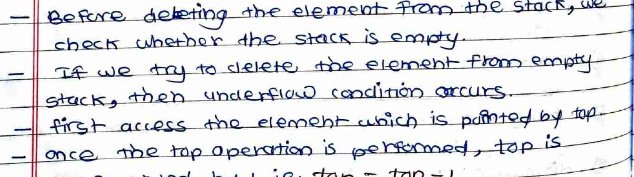 - Before deleting the element from the stack, we
check whether the stack is empty.
- If we try to delete the element from empty
stack, then underflow condition occurs.
- first access the element which is pointed by top.
- once the top operation is performed, top is
by 1 i.e. top = top - 1